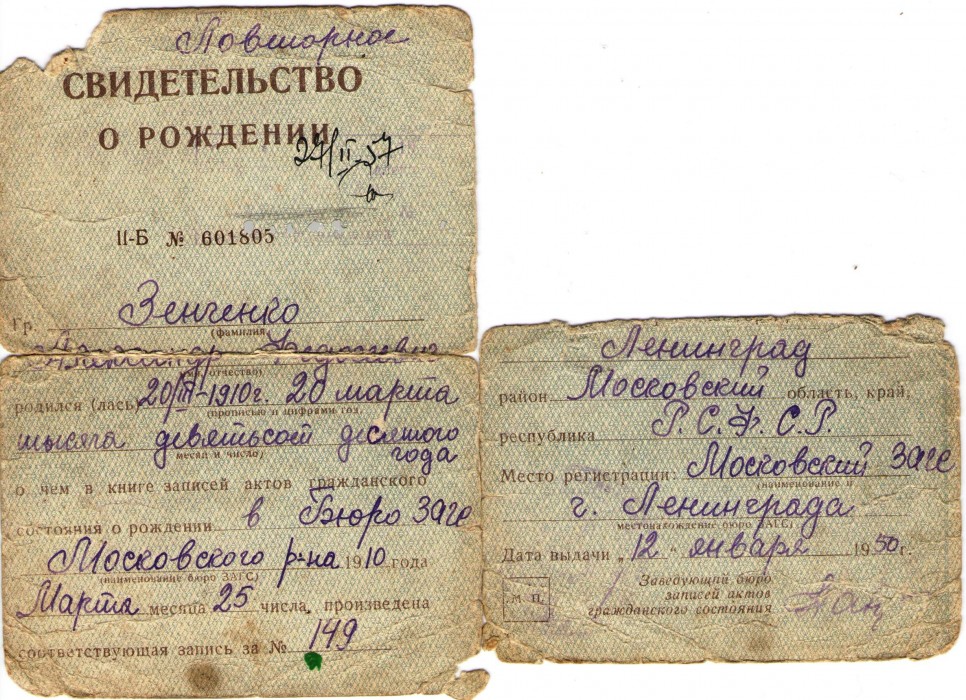 Повторное
СВИДЕТЕЛЬСТВО
О РОЖДЕНИИ
24/II-57
II-Б № 601805
Гр. Зенченко
(фамилия)
Александр
отчество)
родился (лась) 20/III-1910г. 20 марта
(прописью и цифрами год,
тысяча девятьсот десятого
месяц и число)
года
о чем в книге записей актов гражданского
состояния о рождении в Бюро Загс
Московского р-на 1910 года
(наименование бюро ЗАГС)
Марта месяца 25 числа, произведена
соответствующая запись за № 149
Ленинград
район Московский область, край,
республика Р.С.Ф.С.Р.
Место регистрации: Московский Загс
(наименование и
г. Ленинграда
местонахождение бюро ЗАГС)
Дата выдачи „12" января 1950 г.
М. П.
Заведующий бюро
записей актов
гражданского состояния